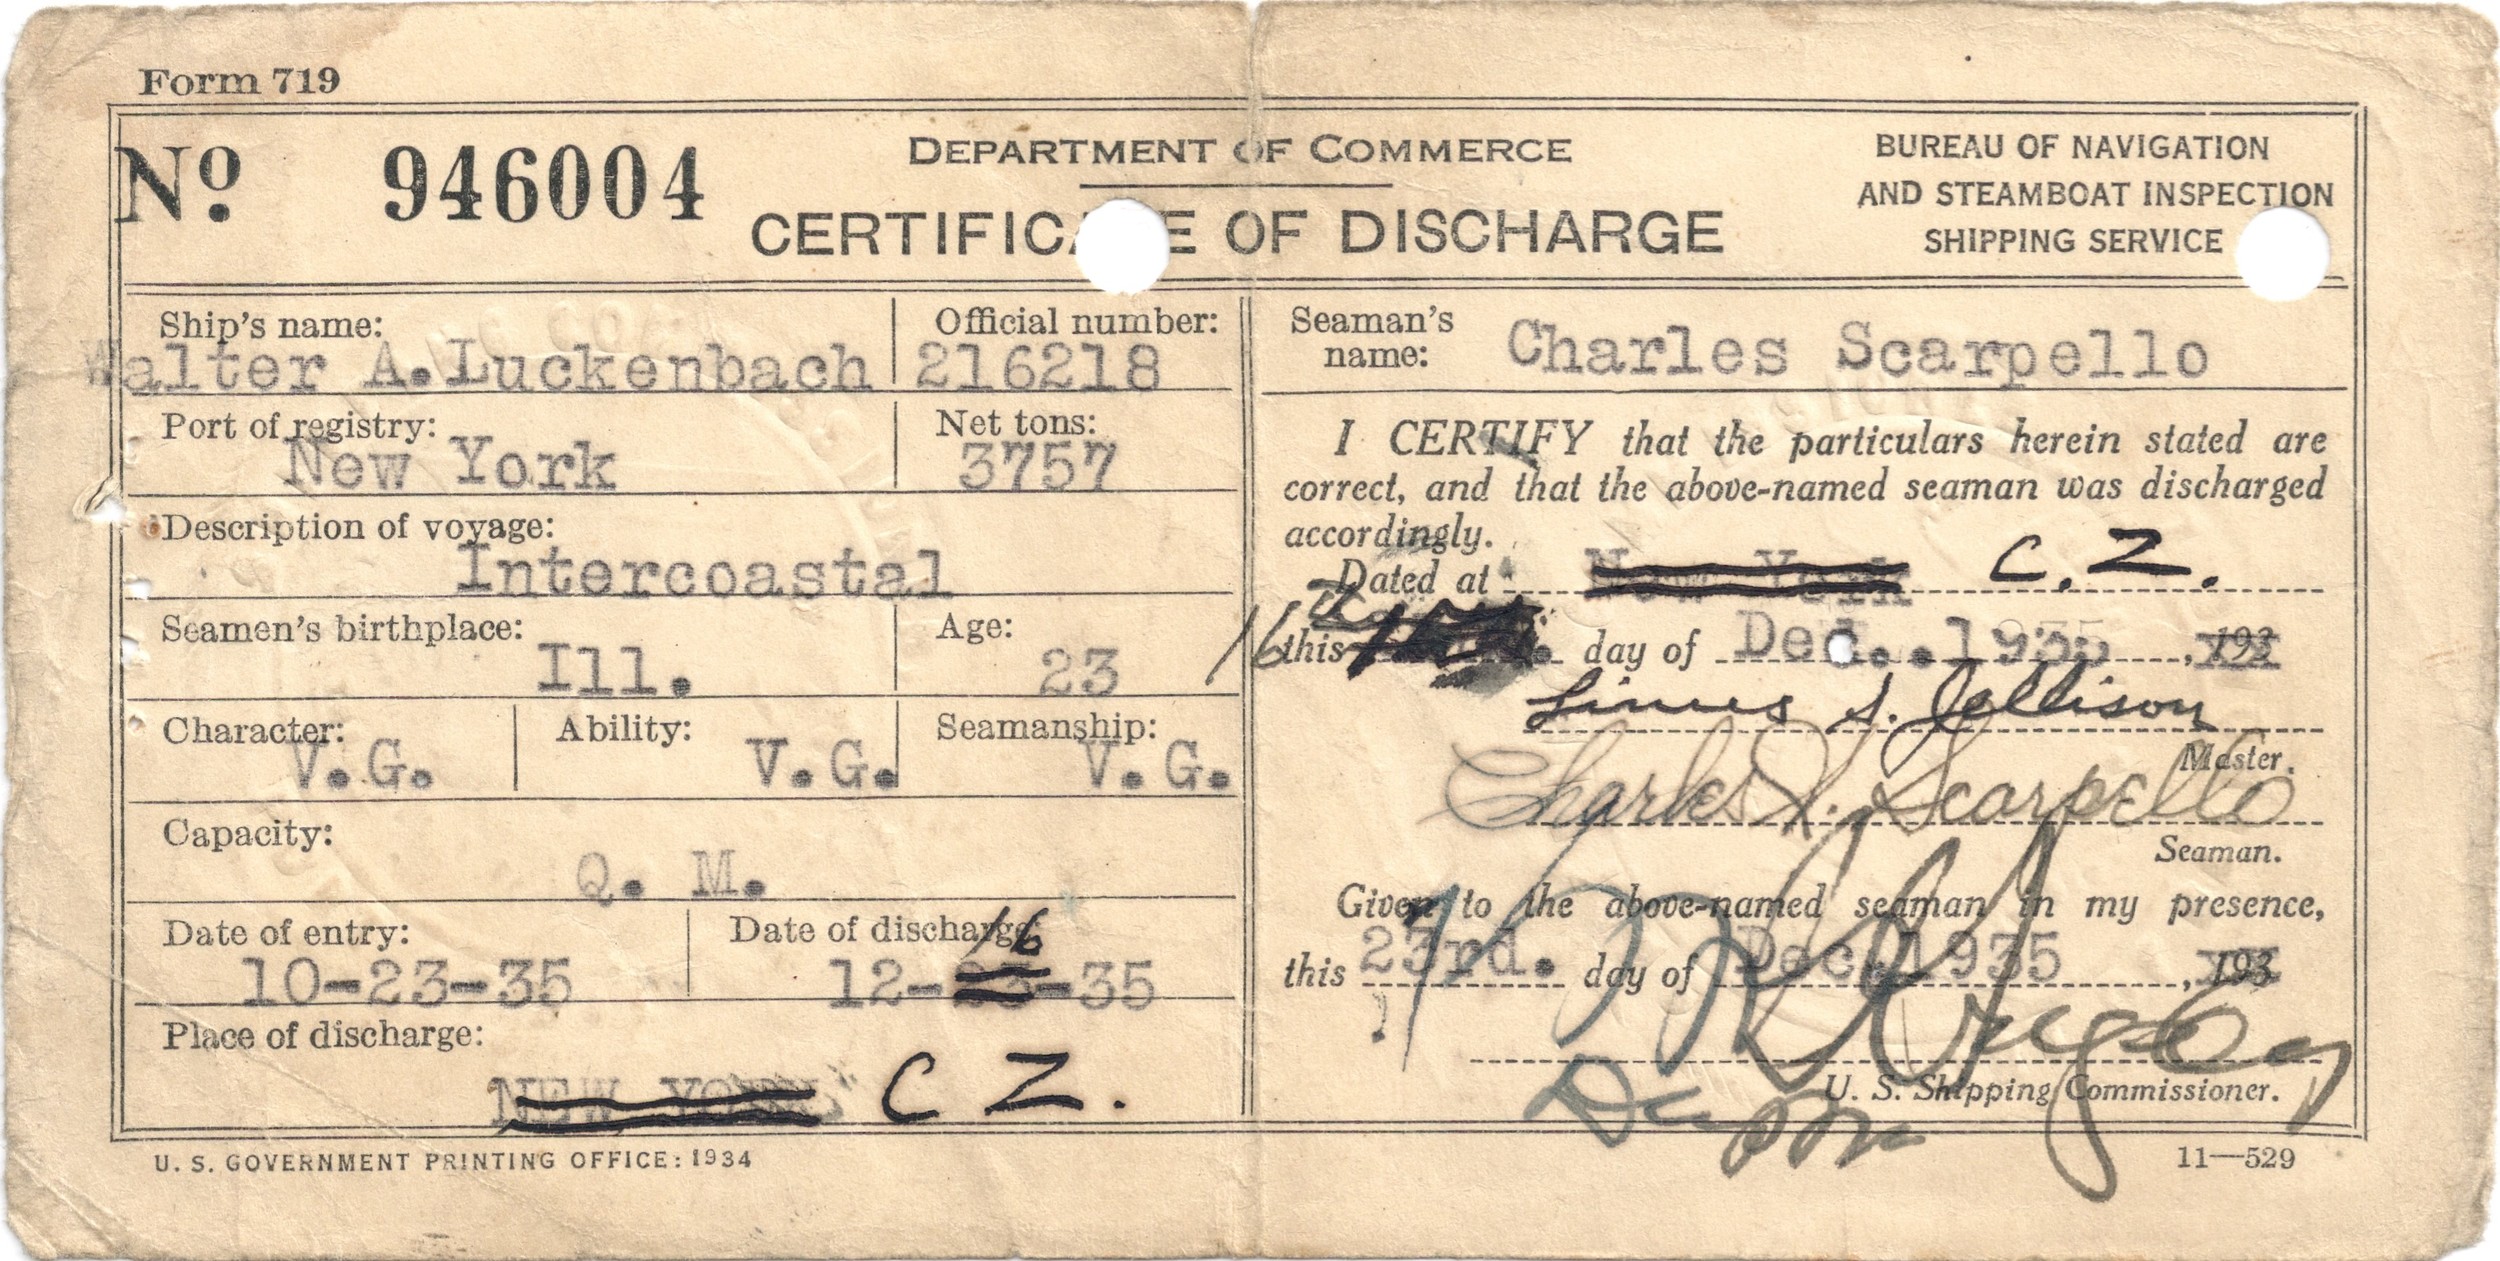 Form 719
No. 946004
DEPARTMENT OF COMMERCE
CERTIFICATE OF DISCHARGE
BUREAU OF NAVIGATION
AND STEAMBOAT INSPECTION
SHIPPING SERVICE
Ship's name:
Walter A. Luckenbach
Official number:
216218
Port of registry:
New York
Net tons:
3757
Description of voyage:
Intercoastal
Seamen's birthplace:
Ill.
Age:
23
Character:
V.G.
Ability:
V.G.
Seamanship:
V.G.
Capacity:
Q. M.
Date of entry:
10-23-35
Date of discharge:
16
12-23-35
Place of discharge:
NEW YORK C Z.
U. S. GOVERNMENT PRINTING OFFICE: 1934
Seaman's name: Charles Scarpello
I CERTIFY that the particulars herein stated are
correct, and that the above-named seaman was discharged
accordingly.
Dated at New York C. Z.
16 this day of Dec. 1935, 193
Linus S. Jellison
Master.
Charles Scarpello
Seaman.
Given to the above-named seaman in my presence,
this 23rd. day of Dec. 1935, 193
U. S. Shipping Commissioner.
11—529